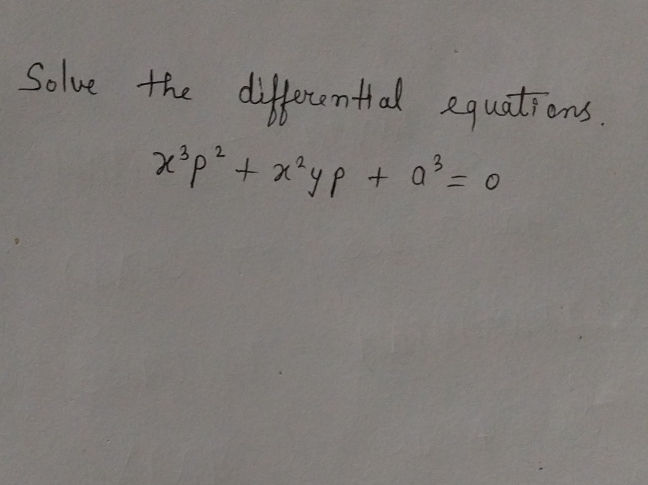 Solve the differential equations.
x³p² + x²yp + a³ = 0